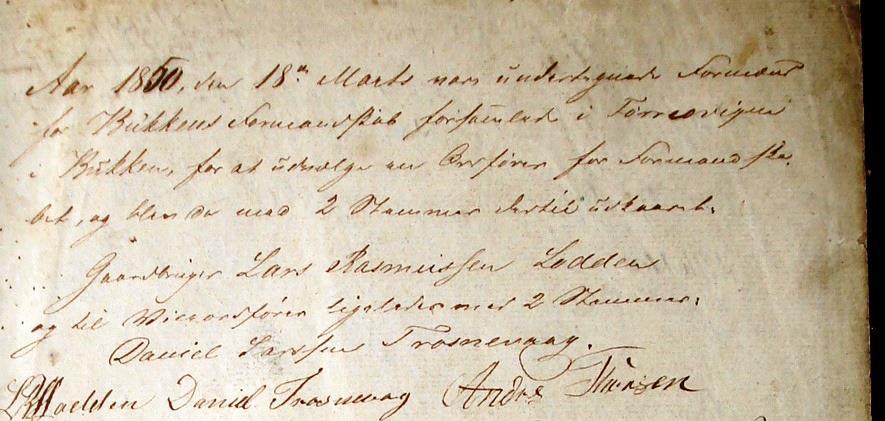 Aar 1850, den 18de Marts vare undertegnede Formænd
for Bukkens Formandskab forsamlede i Tørresvigen
i Bukken, for at udvælge en Ordfører for Formandska-
bet, og blev da med 2 Stemmer dertil udkaaret.
Gaardbruger Lars Rasmussen Lodden
og til Viceordfører ligeledes med 2 Stemmer.
Daniel Larssen Trosnevaag.
LRLodden Daniel Trosnevag Andres Thorsen